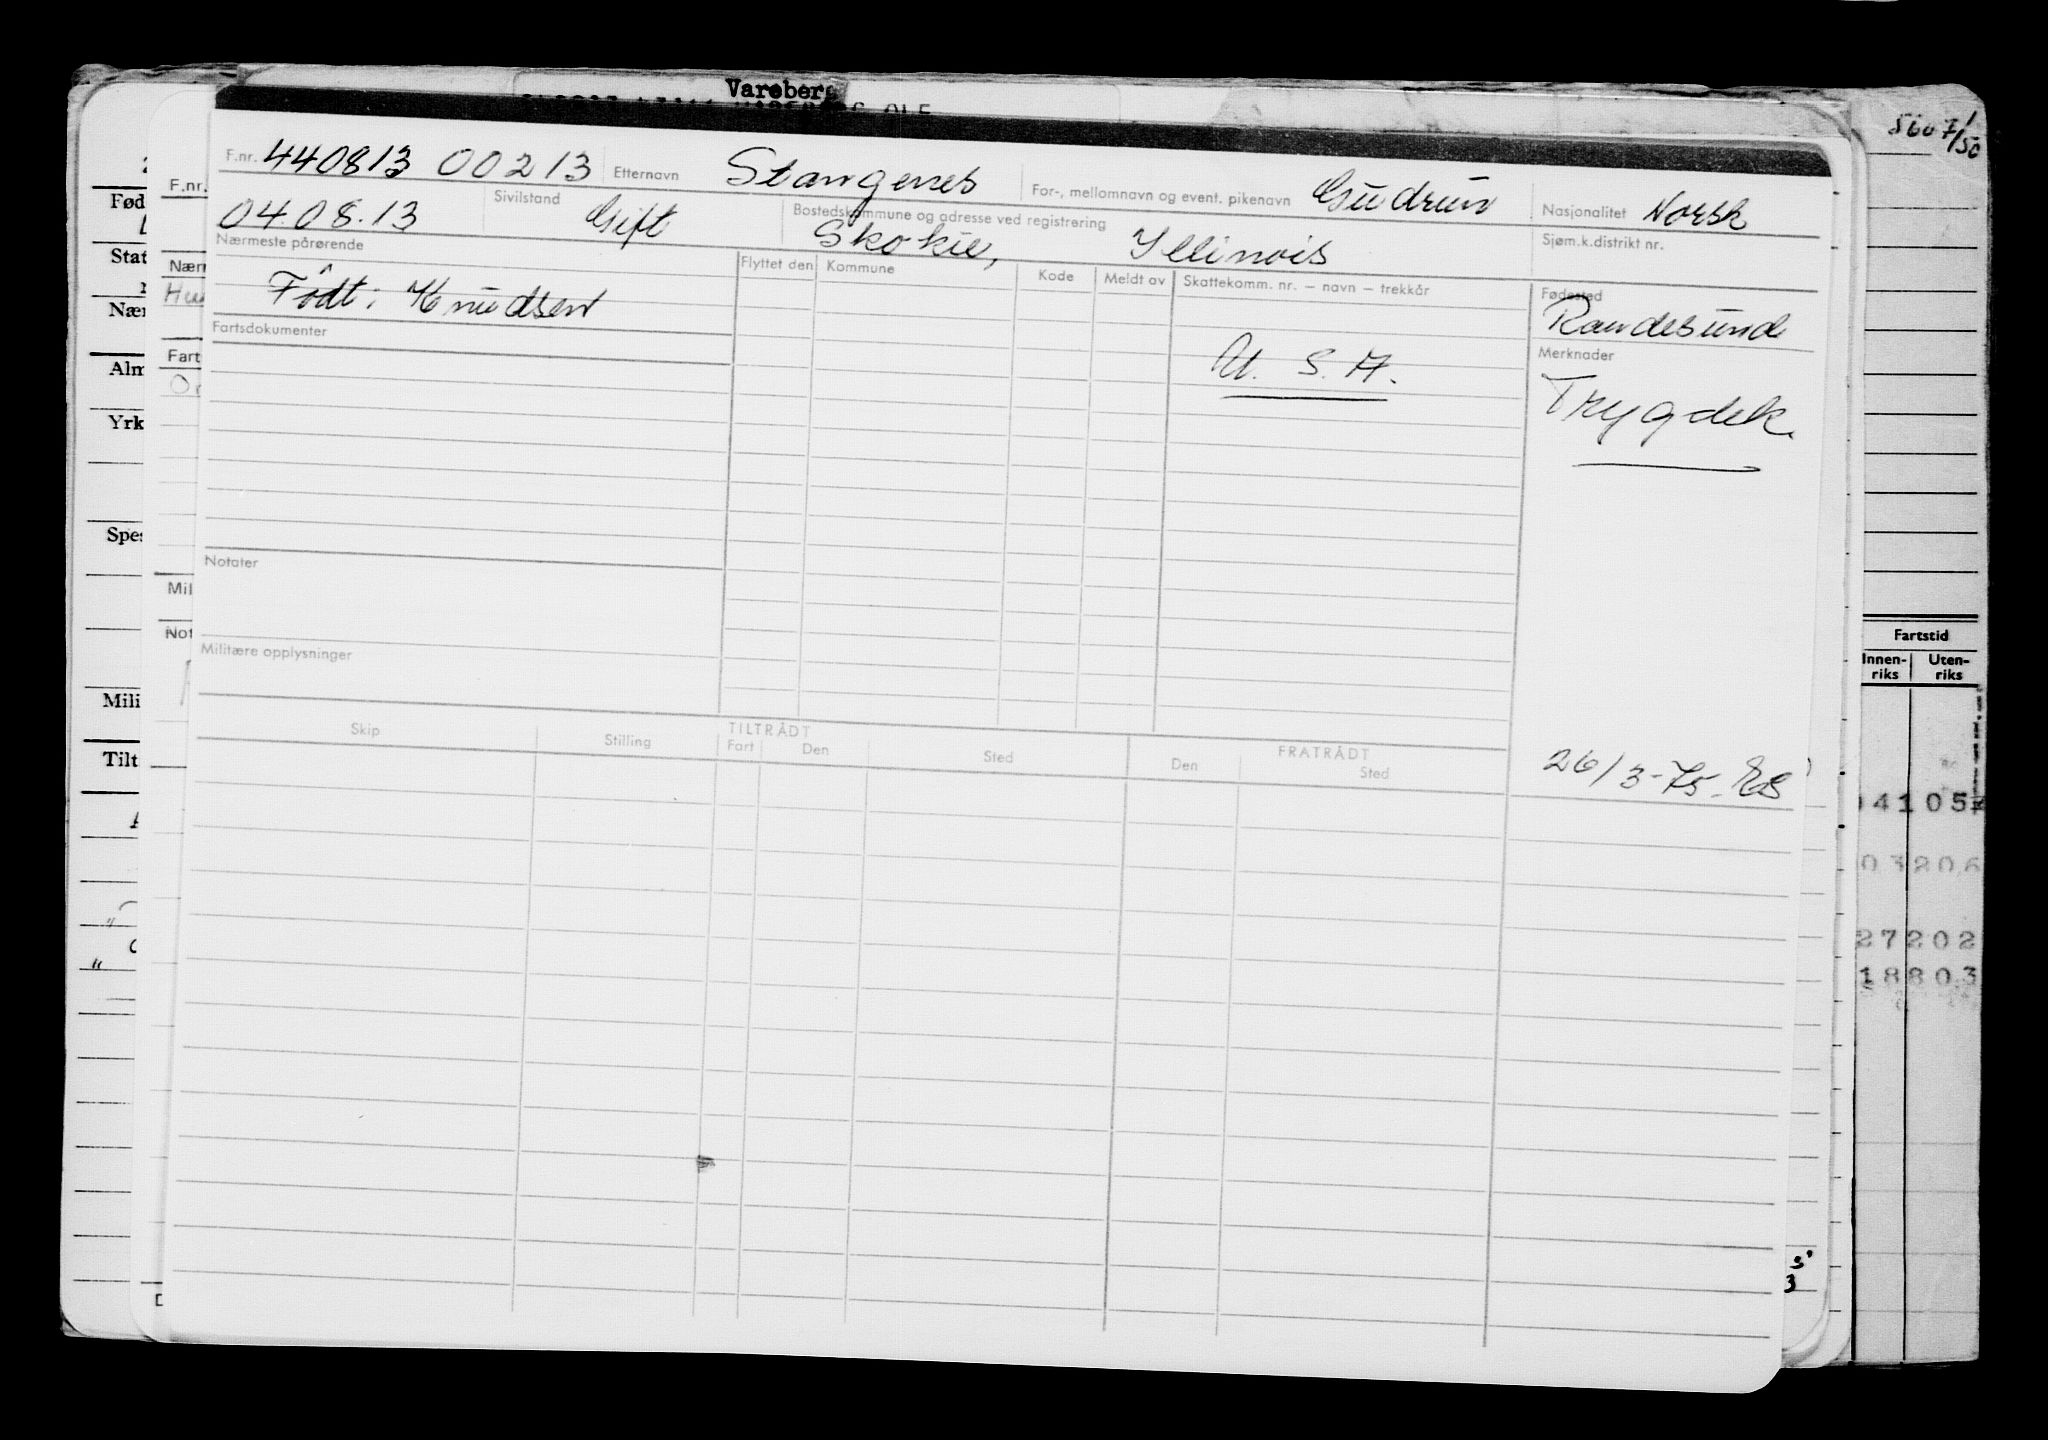 Vareberg
5607/50
F.nr. 440813 00213 Etternavn Stangenes For-, mellomnavn og event. pikenavn Gudrun Nasjonalitet Norsk
04.08.13 Sivilstand Gift Bostedskommune og adresse ved registrering Skokie, Illinois Sjøm.k.distrikt nr.
Nærmeste pårørende Flyttet den Kommune Kode Meldt av Skattekomm. nr. — navn — trekkår Fødested
Født: Knudsen Randesund
Fartsdokumenter U. S. A. Merknader
Trygdek.
Notater
Militære opplysninger
Skip Stilling TILTRÅDT Fart Den Sted FRATRÅDT Den Sted
26/3-75. ES
F.nr.
Fød
Stat
Nær
Nær
Fart
Alm
Yrk
Spes
Mil
Not
Mili
Tilt
Fartstid
Innen-riks Uten-riks
41052
03206
27202
18803